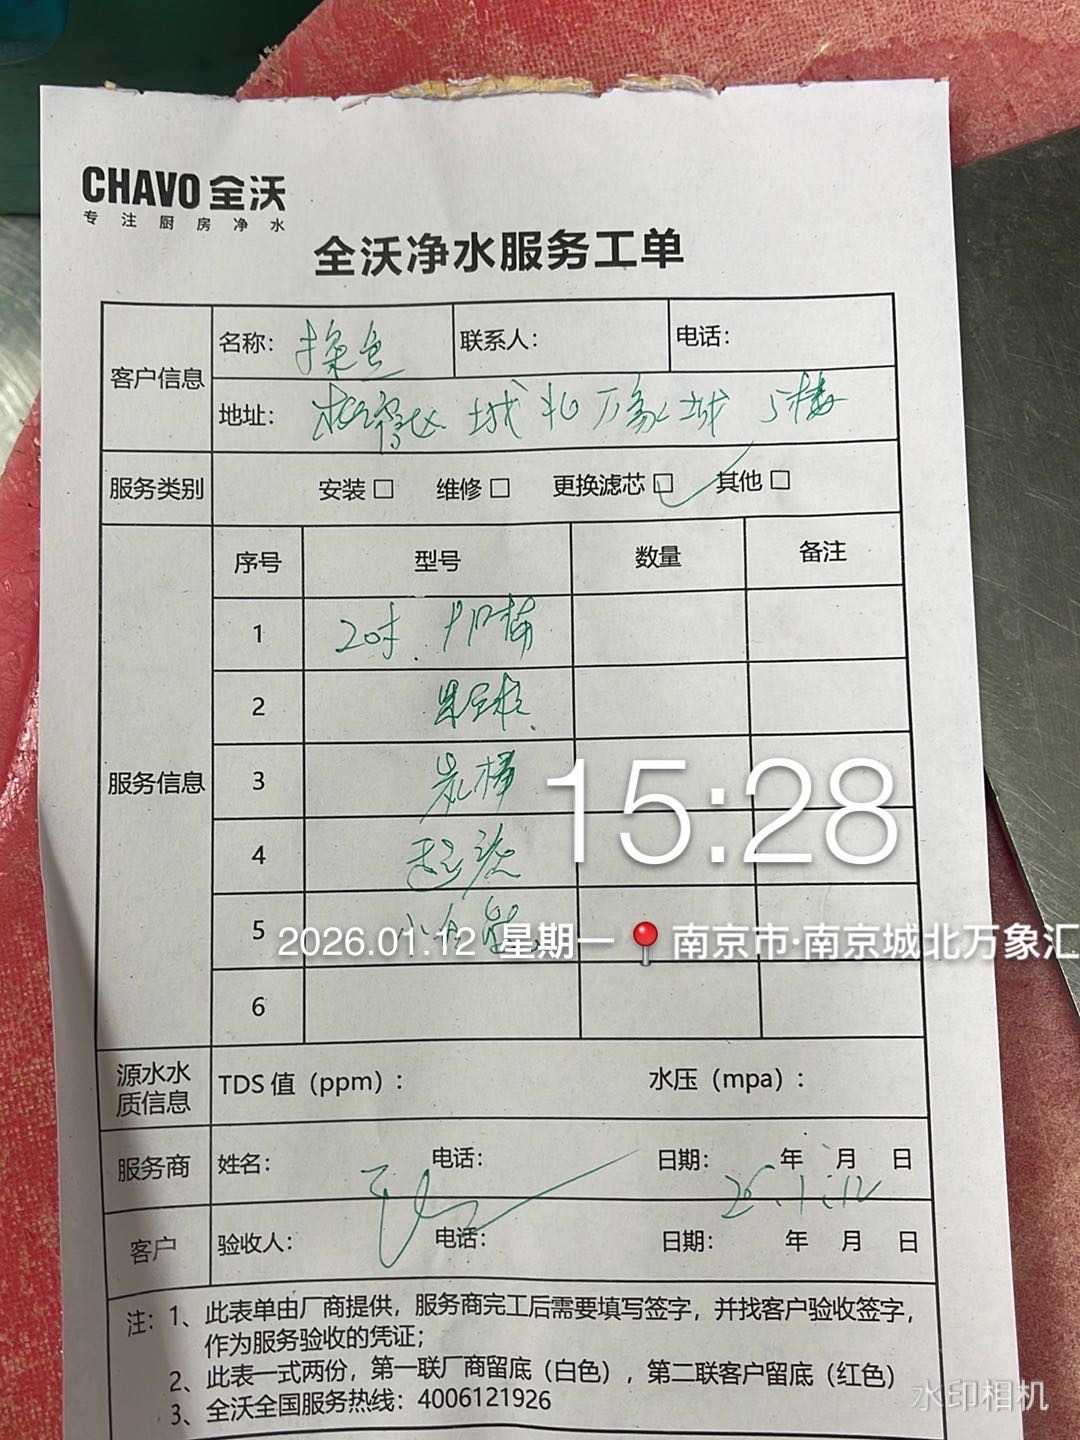 CHAVO 全沃
专注厨房净水
全沃净水服务工单
客户信息
名称: 探鱼
联系人:
电话:
地址: 栖霞区 城北万象城 5楼
服务类别
安装 □ 维修 □ 更换滤芯 □ 其他 □
服务信息
序号 型号 数量 备注
1 20寸 PP棉
2
3 炭棒
4
5
6
15:28
2026.01.12 星期一 南京市·南京城北万象汇
源水水质信息
TDS 值（ppm）:
水压（mpa）:
服务商
姓名:
电话:
日期: 年 月 日
26.1.12
客户
验收人:
电话:
日期: 年 月 日
注: 1、此表单由厂商提供，服务商完工后需要填写签字，并找客户验收签字，
作为服务验收的凭证；
2、此表一式两份，第一联厂商留底（白色），第二联客户留底（红色）
3、全沃全国服务热线：4006121926
水印相机